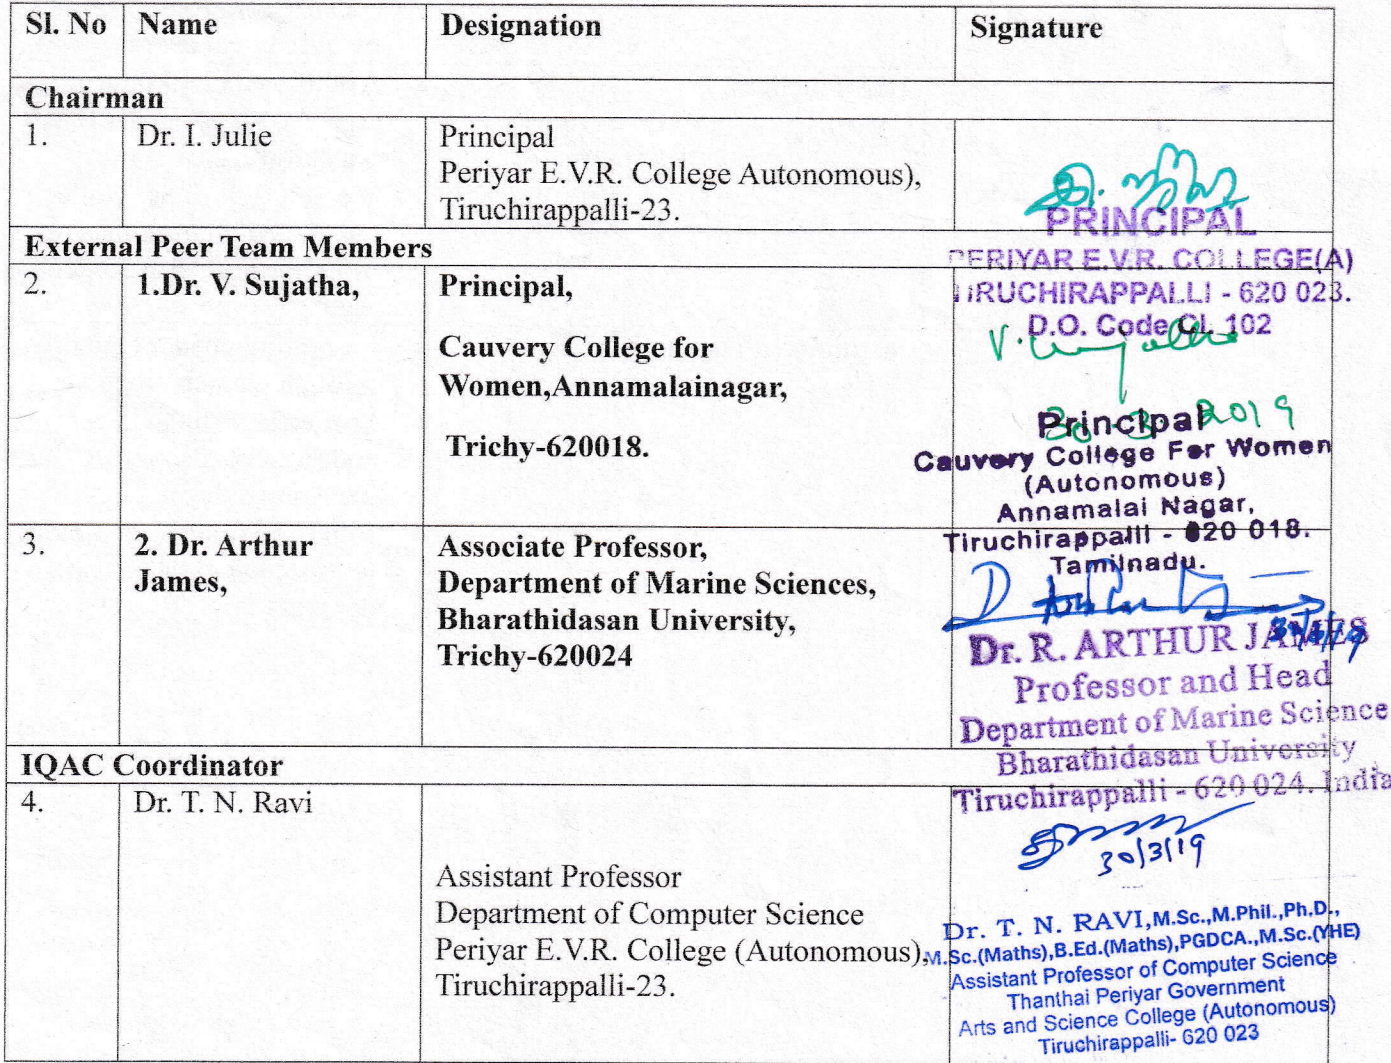 Sl. No Name Designation Signature
Chairman
1. Dr. I. Julie Principal
Periyar E.V.R. College Autonomous),
Tiruchirappalli-23.
PRINCIPAL
PERIYAR E.V.R. COLLEGE(A)
TIRUCHIRAPPALLI - 620 023.
D.O. Code CL 102
External Peer Team Members
2. 1.Dr. V. Sujatha, Principal,
Cauvery College for
Women,Annamalainagar,
Trichy-620018.
V. Sujatha
30-3-2019
Principal
Cauvery College For Women
(Autonomous)
Annamalai Nagar,
Tiruchirappalli - 620 018.
Tamilnadu.
3. 2. Dr. Arthur
James,
Associate Professor,
Department of Marine Sciences,
Bharathidasan University,
Trichy-620024
Dr. R. ARTHUR JAMES
Professor and Head
Department of Marine Science
Bharathidasan University
Tiruchirappalli - 620 024. India
IQAC Coordinator
4. Dr. T. N. Ravi
Assistant Professor
Department of Computer Science
Periyar E.V.R. College (Autonomous),
Tiruchirappalli-23.
30/3/19
Dr. T. N. RAVI,M.Sc.,M.Phil.,Ph.D.,
M.Sc.(Maths),B.Ed.(Maths),PGDCA.,M.Sc.(YHE)
Assistant Professor of Computer Science
Thanthai Periyar Government
Arts and Science College (Autonomous)
Tiruchirappalli- 620 023